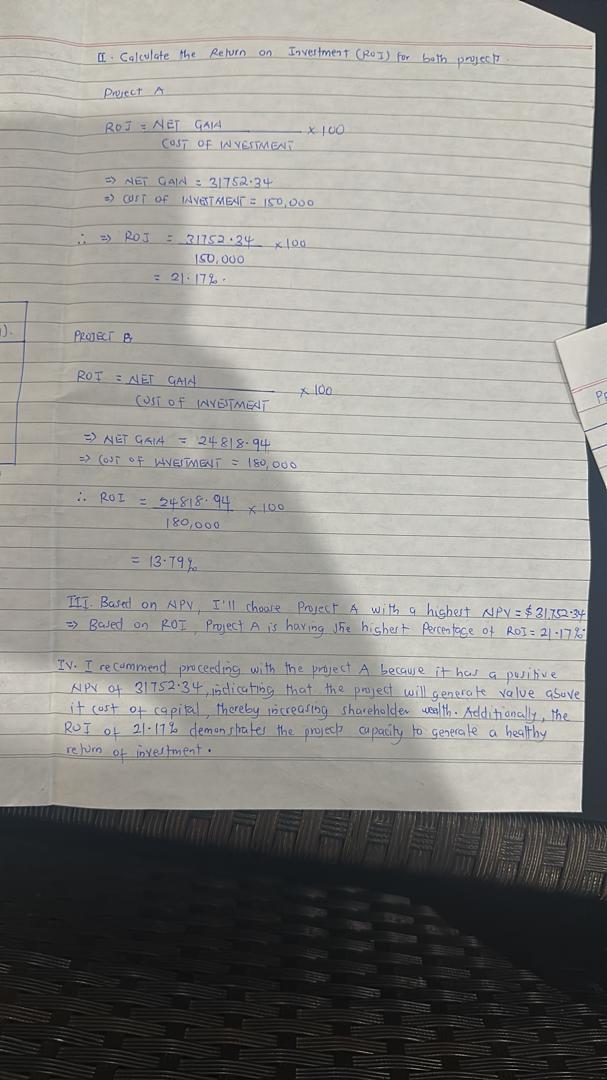 II. Calculate the Return on Investment (ROI) for both projects.
Project A
ROI = NET GAIN × 100
COST OF INVESTMENT
⇒ NET GAIN = 31752.34
⇒ COST OF INVESTMENT = 150,000
∴ ⇒ ROI = 31752.34 × 100
150,000
= 21.17%.
).
PROJECT B
ROI = NET GAIN × 100
COST OF INVESTMENT
⇒ NET GAIN = 24818.94
⇒ COST OF INVESTMENT = 180,000
∴ ROI = 24818.94 × 100
180,000
= 13.79%
III. Based on NPV, I'll choose Project A with a highest NPV = $31,752.34
⇒ Based on ROI, Project A is having the highest Percentage of ROI = 21.17%
IV. I recommend proceeding with the project A because it has a positive
NPV of 31752.34, indicating that the project will generate value above
it cost of capital, thereby increasing shareholder wealth. Additionally, the
ROI of 21.17% demonstrates the projects capacity to generate a healthy
return of investment.